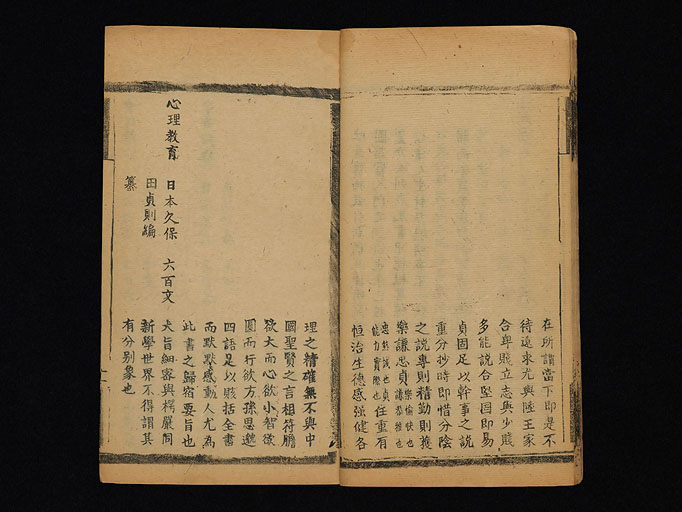 在所謂當下即是不
待遠求尤與陸王家
合卑賤立志與少賤
多能說合堅固即易
貞固足以幹事之說
重分抄時即惜分陰
之說專則精勤則獲
樂謙忠貞 樂愉快也 謙恭維也
忠懇誠也 貞能力實際也 任重有
恒治生德感強健各
理之精確無不與中
國聖賢之言相符膽
欲大而心欲小智欲
圓而行欲方孫思邈
四語足以賅括全書
而默默感動人尤為
此書之歸宿要旨也
大旨細密與楞嚴同
新學世界不得謂其
有分別象也
心理教育 日本久保 六百文
田貞則編
纂